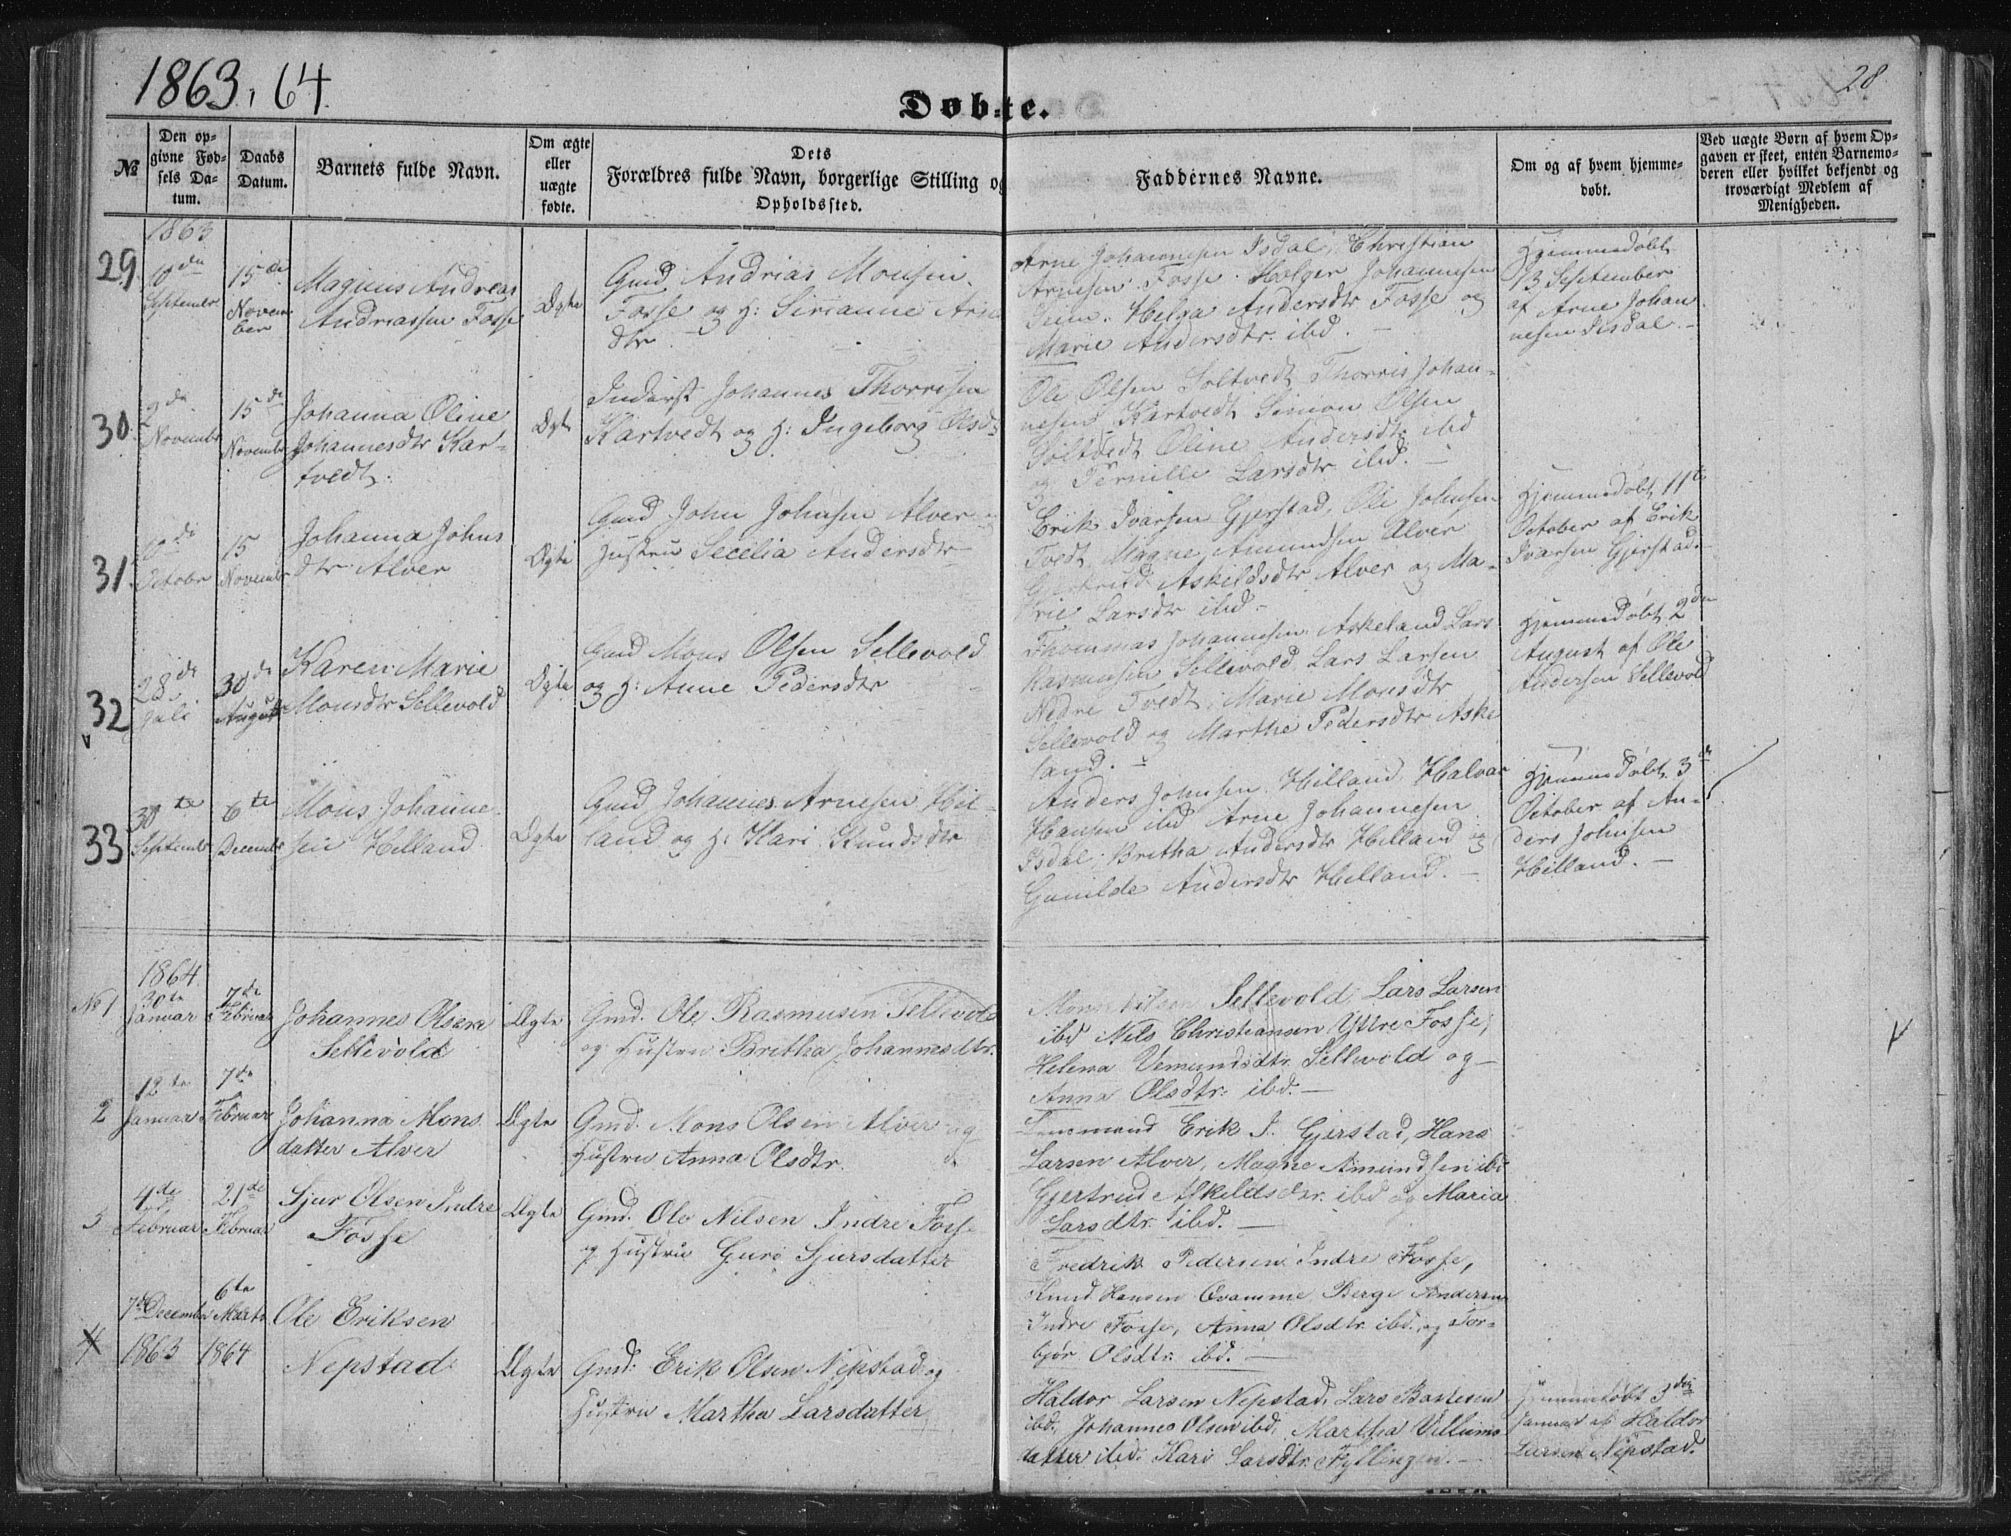 1863, 64.
28.
Døbte.
№
Den op-
givne Fød-
sels Da-
tum.
Daabs
Datum.
Barnets fulde Navn.
Om ægte
eller
uægte
fødte.
Dets
Forældres fulde Navn, borgerlige Stilling og
Opholdssted.
Faddernes Navne.
Om og af hvem hjemme-
døbt.
Ved uægte Børn af hvem Op-
gaven er skeet, enten Barnemo-
deren eller hvilket bekjendt og
troværdigt Medlem af
Menigheden.
1863
29.
10de
September
15de
Novem-
ber
Magnus Andreas
Andreassen Fosse
Ægte
Gmd Andrias Monsen
Fosse og H: Sirianne Arne
dtr
Arne Johannesen Isdal, Christian
Arnesen Fosse. Holger Johannesen
Helga Andersdtr Fosse og
Marie Andersdtr ibd. —
Hjemmedøbt
13 September
af Arne Johan
nesen Isdal. —
30.
2den
November
15de
November
Johanna Oline
Johannesdtr Kar-
tvedt.
Ægte
Inderst Johannes Thorrisen
Kartvedt og H: Ingeborg Olsd
Ole Olsen Soltvedt, Thorris Johan-
nesen Kartvedt, Simon Olsen
Soltvedt Oline Andersdtr ibd
og Pernille Larsdtr ibd. —
31.
October
15
November
Johanna Johns
dtr Alver
Ægte
Gmd John Johnsen Alver og
Hustru Secilia Andersdtr
Erik Ivarsen Gjerstad, Ole Johnsen
Tvedt, Magne Amundsen Alver
Gjertrud Askildsdtr Alver og Ma-
rie Larsdtr ibd. —
Hjemmedøbt 11te
October af Erik
Ivarsen Gjerstad. —
32
28de
Juli
30de
August
Karen Marie
Monsdtr Sellevold
Ægte
Gmd Mons Olsen Sellevold
og H: Anne Pedersdtr
Thommas Johannesen Askeland, Lars
Rasmusen Sellevold, Lars Larsen
Nedre Tvedt, Marie Monsdtr
Sellevold og Marthe Pedersdtr Aske
land. —
Hjemmedøbt 2den
August af Ole
Andersen Sellevold
33
30te
September
6te
December
Mons Johanne-
sen Helland
Ægte
Gmd Johannes Arnesen Hel-
land og H: Kari Knudsdtr
Anders Johnsen Helland, Halvar
Hansen ibd Arne Johannesen
Isdal, Britha Andersdtr Helland og
Gunilde Andersdtr Helland. —
Hjemmedøbt 3de
October af An-
ders Johnsen
Helland. —
1864.
№ 1
30te
Januar
7de
Februar
Johannes Olsen
Sellevold
Ægte
Gmd. Ole Rasmusen Sellevold
og Hustru Britha Johannesdtr.
Mons Nilsen Sellevold, Lars Larsen
ibd Nils Christiansen Yttre Fosse,
Helena Vemundsdtr. Sellevold og —
Anna Olsdtr. ibd. —
2
12te
Januar
7de
Februar
Johanna Mons
datter Alver
Ægte
Gmd. Mons Olsen Alver og
Hustru Anna Olsdtr.
Lensmand Erik I. Gjerstad, Hans
Larsen Alver, Magne Amundsen ibd
Gjertrud Askeldsdtr. ibd og Maria
Larsdtr. ibd. —
3
4de
Februar
21de
Februar
Sjur Olsen Indre
Fosse
Ægte
Gmd. Ole Nilsen Indre Fosse
og Hustru Guro Sjursdatter
Fredrik Pedersen Indre Fosse,
Knud Hansen Qvamme Berge Andersen
Indre Fosse, Anna Olsdtr. ibd. og Tor-
bjør Olsdtr. ibd. —
4
7de December
1863
6te
Marts
1864
Ole Eriksen
Nepstad
Ægte
Gmd: Erik Olsen Nepstad og
Hustru Martha Larsdatter
Haldor Larsen Nepstad, Lars Bastesen
ibd. Johannes Olsen ibd, Martha Villums
datter ibd. Kari Larsdtr. Fyllingen. —
Hjemmedøbt 3die
Januar af Haldor
Larsen Nepstad.